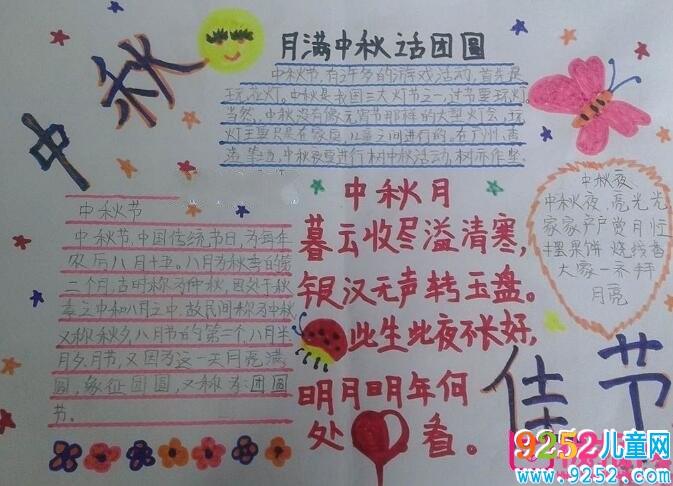 中秋
月满中秋话团圆
中秋节,有许多的游戏活动,首先是
玩花灯。中秋是我国三大灯节之一,过节要玩灯。
当然,中秋没有像元宵节那样的大型灯会,玩
灯主要只是在家庭,儿童之间进行的。在广州、南
中秋夜要进行树中秋活动,树亦作竖
中秋节
中秋节,中国传统节日,为每年
农历八月十五。八月为秋季的第
二个月,古时称为仲秋,因处于秋
季之中和八月之中,故民间称为中秋
又称秋夕,八月节的第二个,八月半
月夕,月节,又因为这一天月亮满
圆,象征团圆,又称为:团圆
节。
中秋月
暮云收尽溢清寒,
银汉无声转玉盘。
此生此夜不长好,
明月明年何
处看。
中秋夜
中秋夜,亮光光
家家户户赏月忙
摆果饼 烧线香
大家一齐拜
月亮
佳节
9252儿童网
www.9252.com